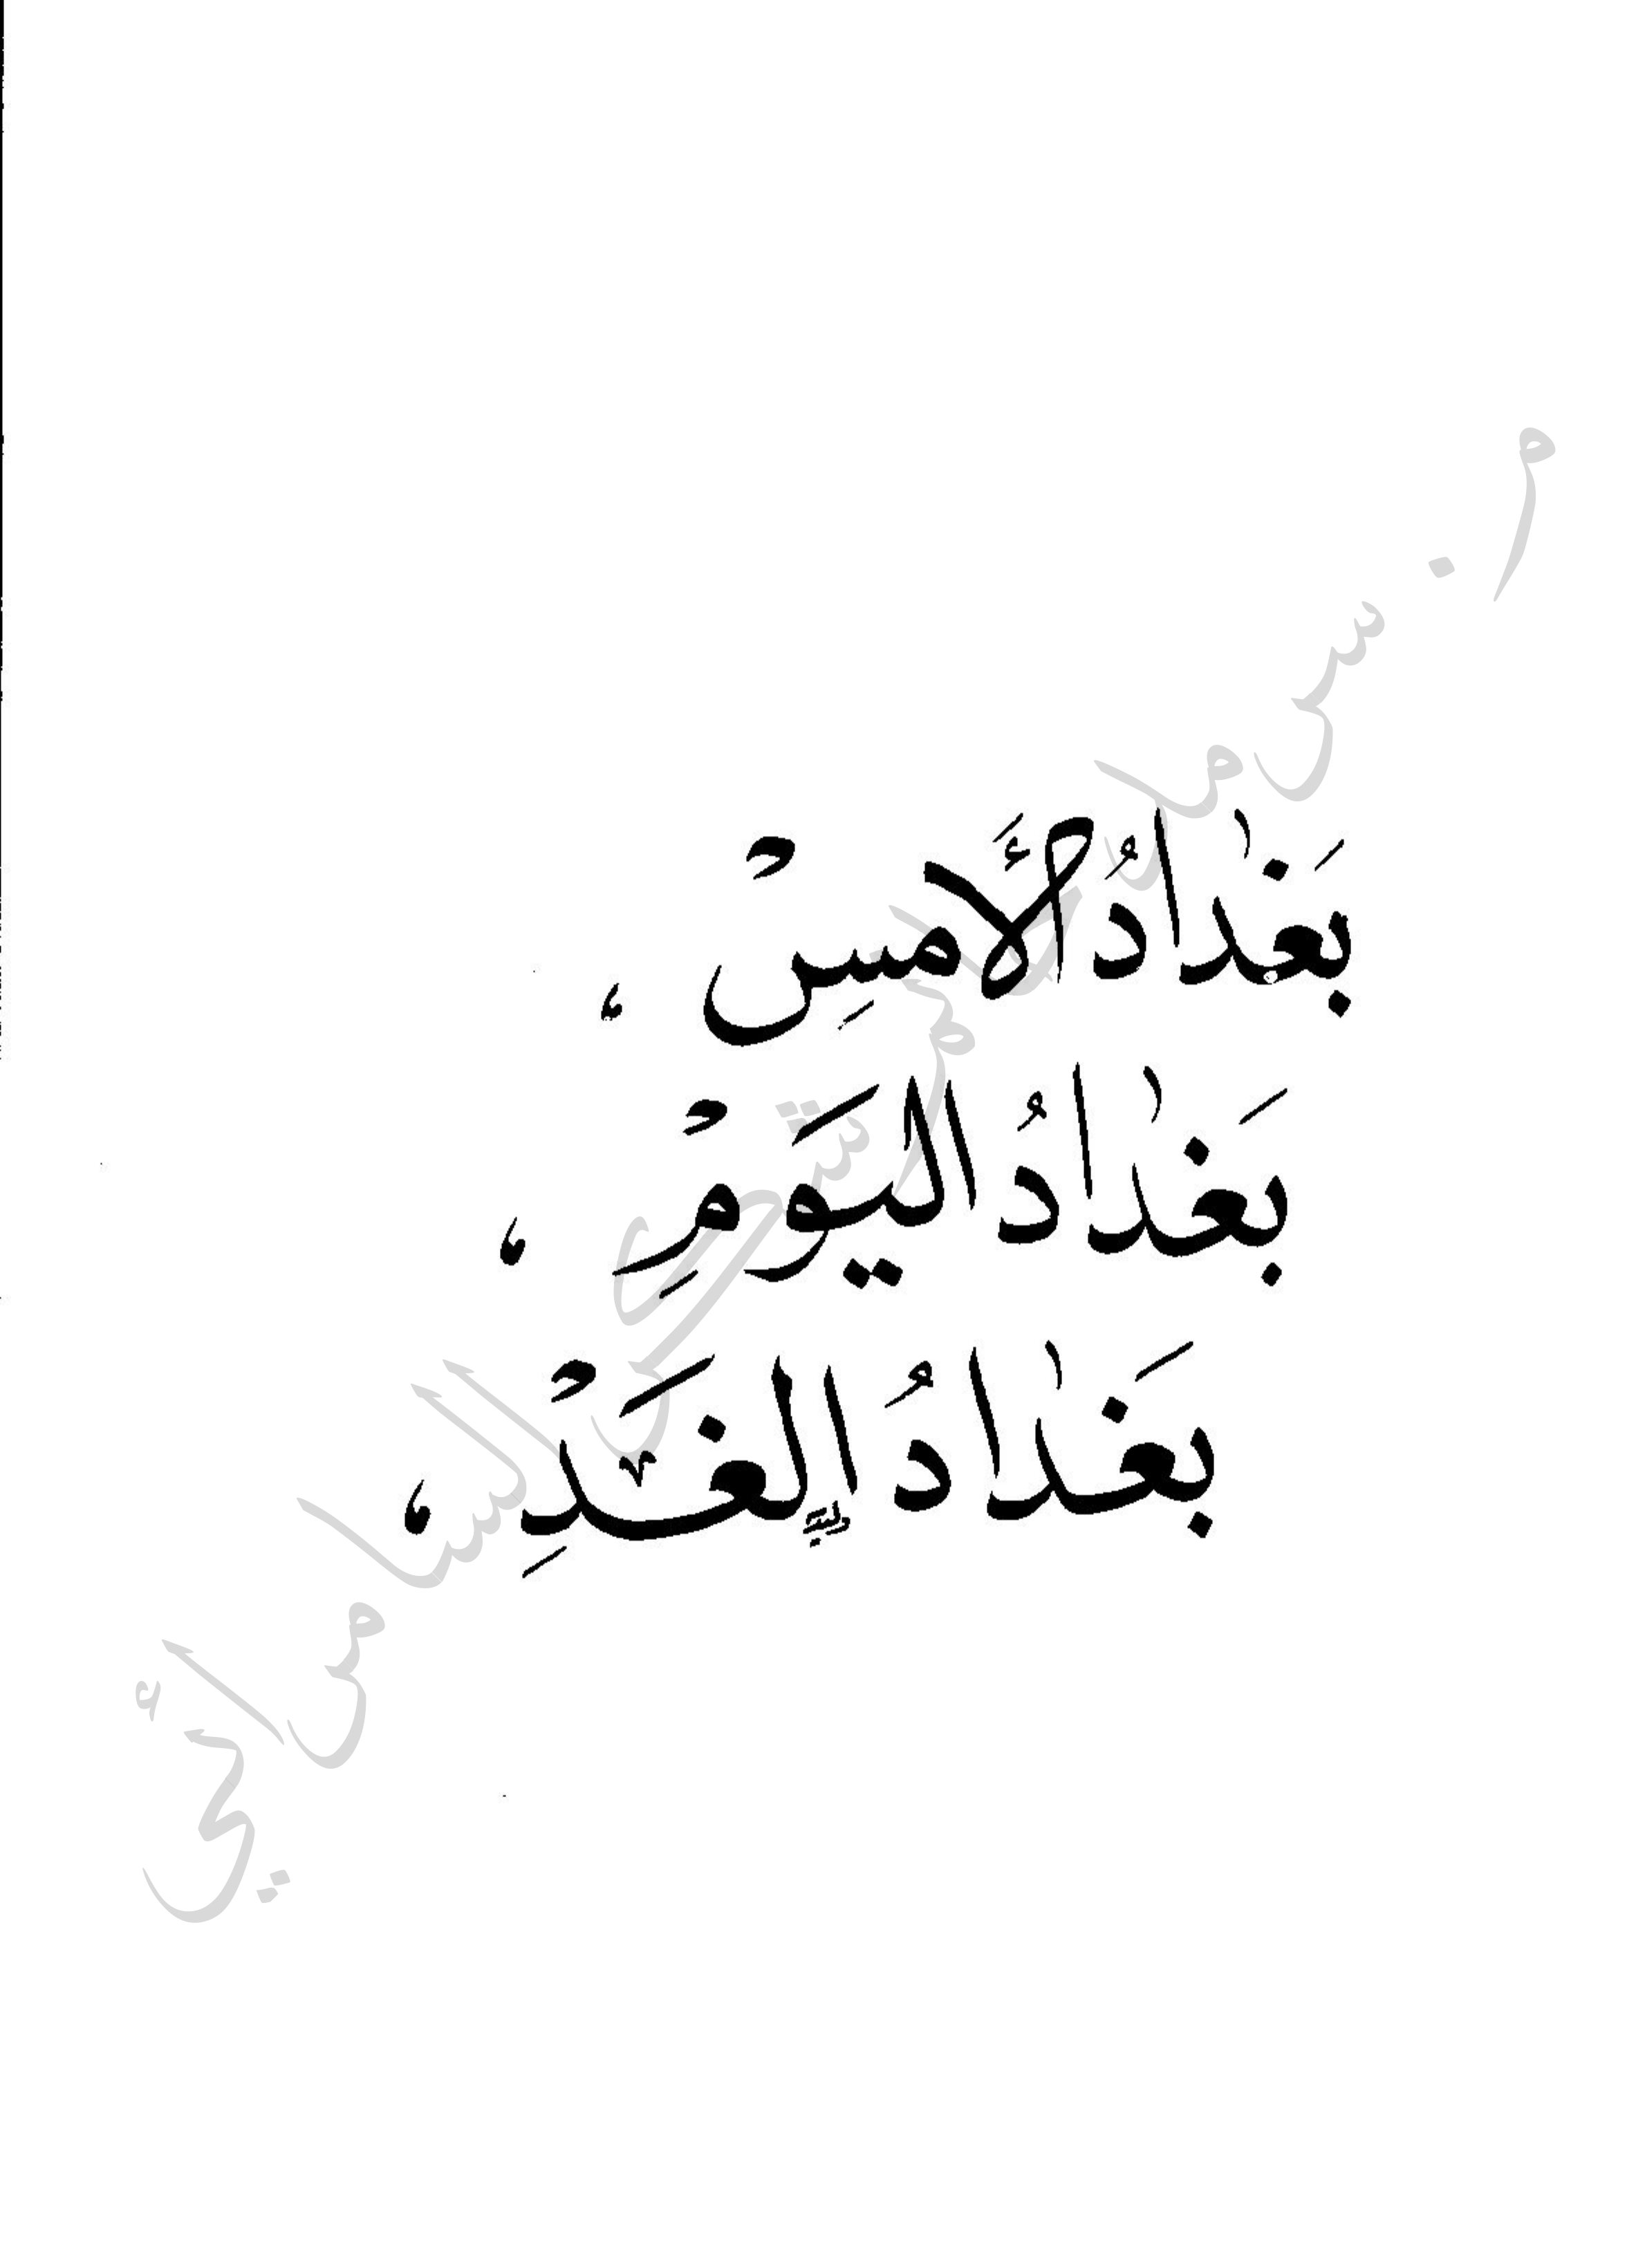 بَغْدَادُ الأَمْسِ ،
بَغْدَادُ اليَوْمِ ،
بَغْدَادُ الغَدِ ،
م . سرمد حاتم شكر السامرائي